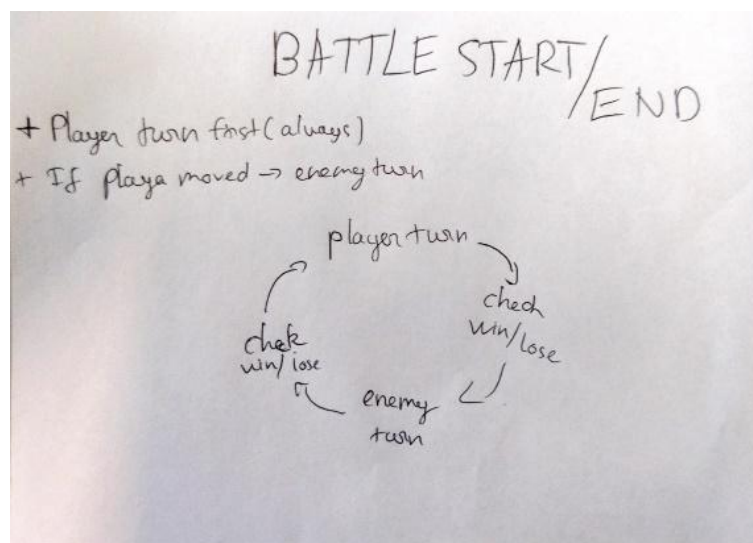 BATTLE START/
END
+ Player turn first (always)
+ If playa moved → enemy turn
player turn
check
win/lose
enemy
turn
chek
win/lose